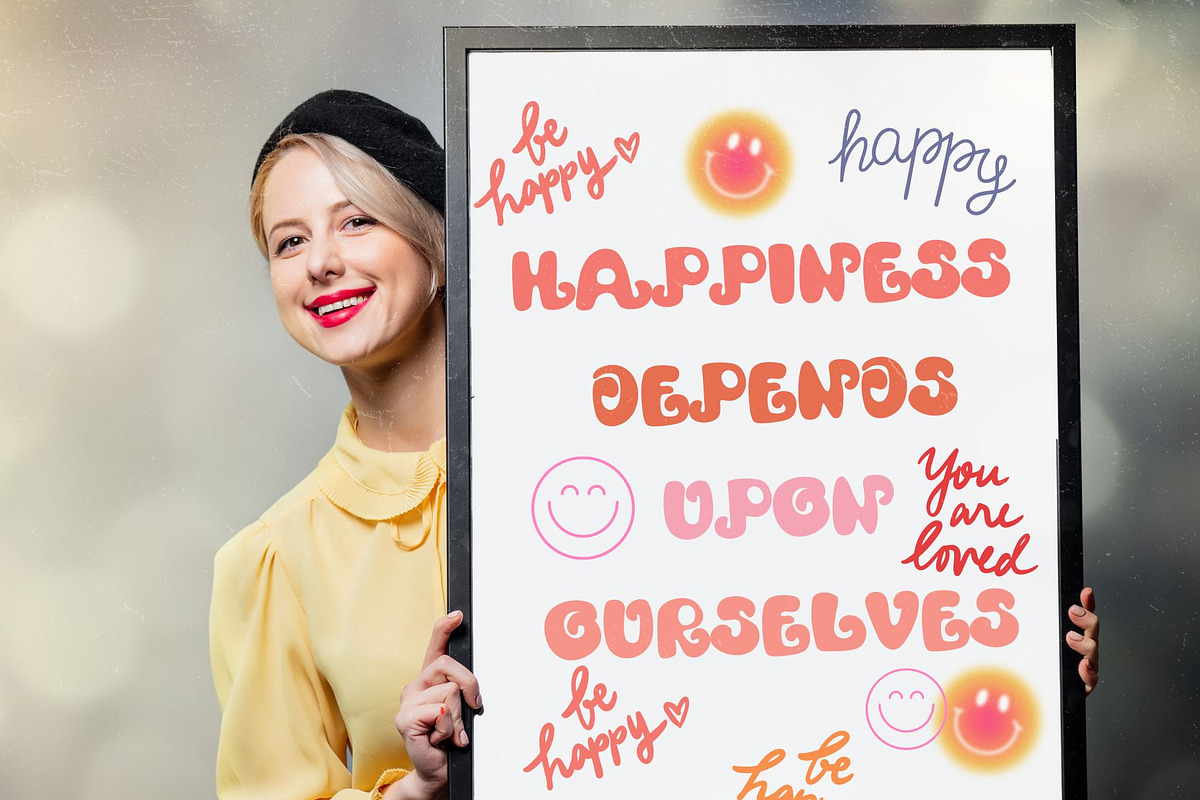 be
happy
happy
HAPPINESS
DEPENDS
UPON
You
are
loved
OURSELVES
be
happy
be